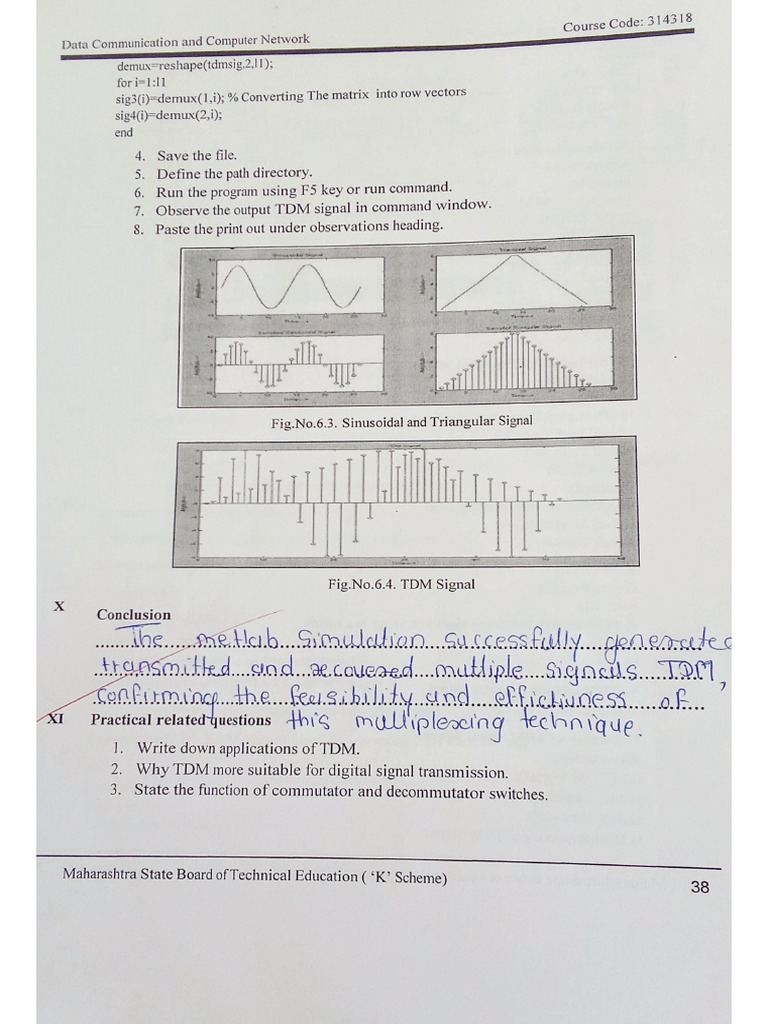 Data Communication and Computer Network Course Code: 314318
demux=reshape(tdmsig,2,l1);
for i=1:l1
sig3(i)=demux(1,i); % Converting The matrix into row vectors
sig4(i)=demux(2,i);
end
4. Save the file.
5. Define the path directory.
6. Run the program using F5 key or run command.
7. Observe the output TDM signal in command window.
8. Paste the print out under observations heading.
Sinusoidal Signal
Triangular Signal
Sampled Sinusoidal Signal
Sampled Triangular Signal
Fig.No.6.3. Sinusoidal and Triangular Signal
TDM Signal
Fig.No.6.4. TDM Signal
X Conclusion
The metlab simulation successfully generated
transmitted and recovered multiple signals TDM,
confirming the feasibility and effictivness of
XI Practical related questions this multiplexing technique.
1. Write down applications of TDM.
2. Why TDM more suitable for digital signal transmission.
3. State the function of commutator and decommutator switches.
Maharashtra State Board of Technical Education ( ‘K’ Scheme)
38